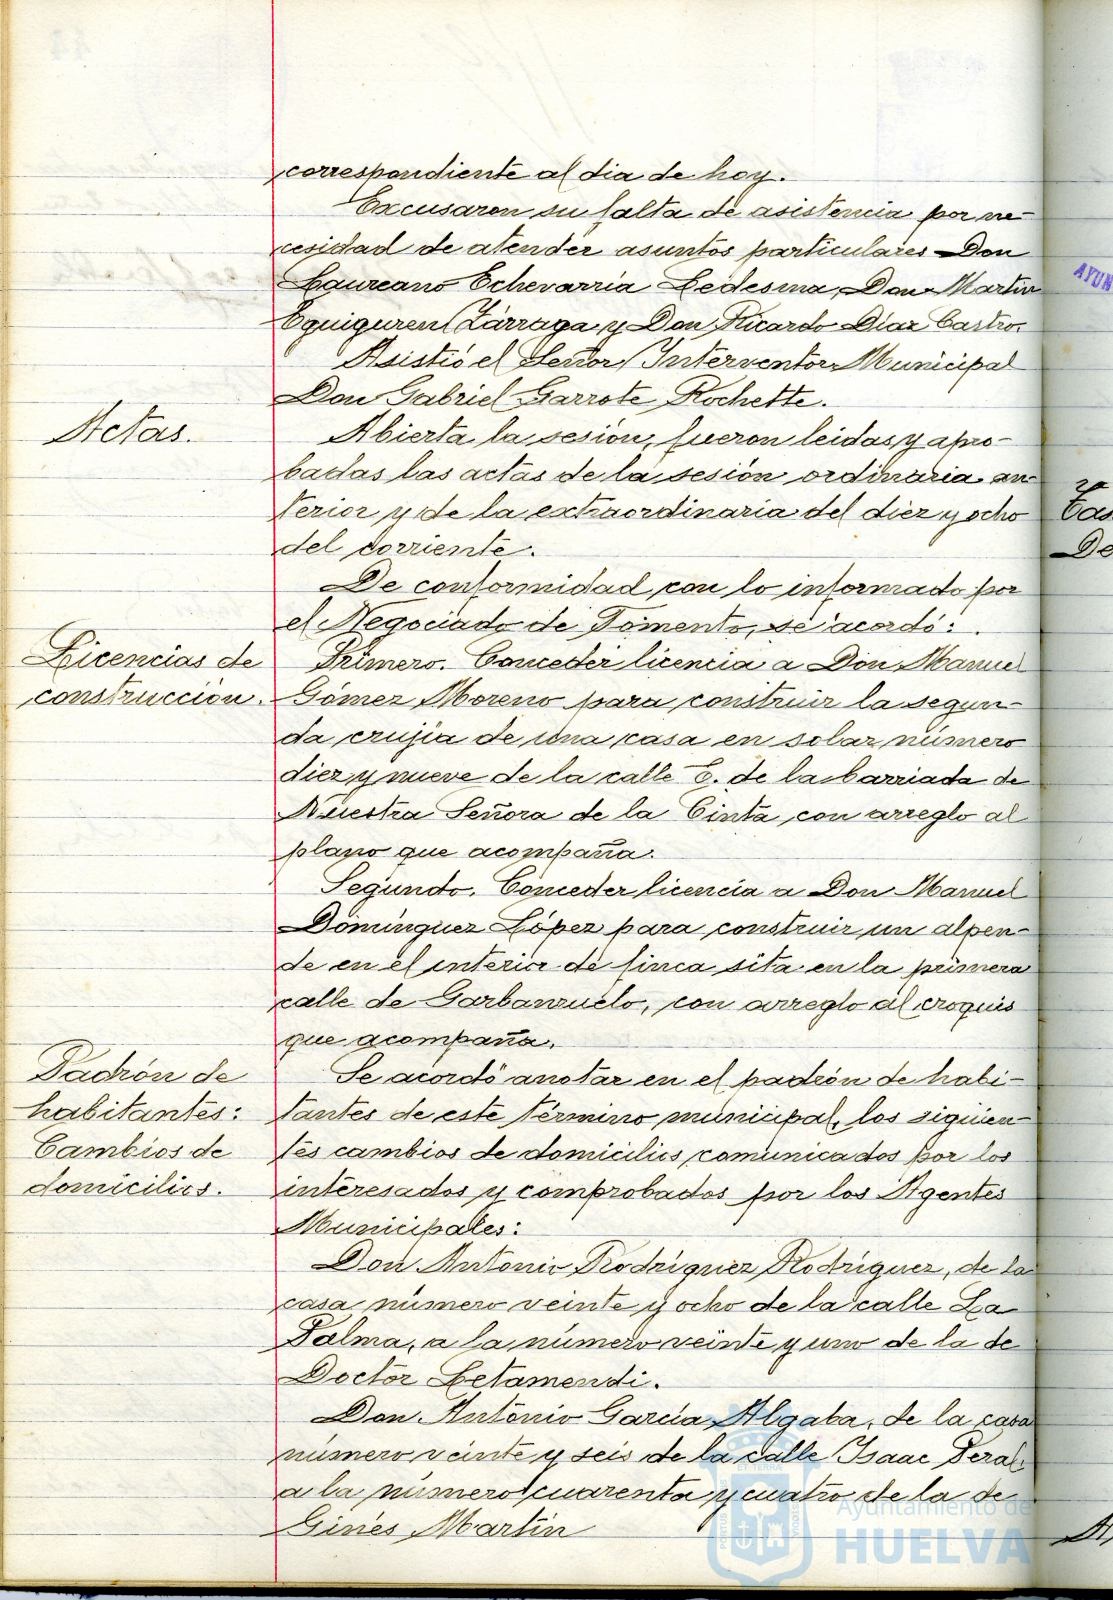 correspondiente al dia de hoy.
Excusaron su falta de asistencia por ne-
cesidad de atender asuntos particulares Don
Laureano Echevarría Ledesma, Don Martín
Eguiguren Zárraga y Don Ricardo Díaz Castro.
Asistió el Señor Interventor Municipal
Don Gabriel Garrote Rochette.
Actas.
Abierta la sesión, fueron leidas y apro-
badas las actas de la sesión ordinaria an-
terior y de la extraordinaria del diez y ocho
del corriente.
De conformidad con lo informado por
el Negociado de Fomento, se acordó:
Licencias de
construcción.
Primero. Conceder licencia a Don Manuel
Gómez Moreno para construir la segun-
da crujía de una casa en solar número
diez y nueve de la calle E. de la barriada de
Nuestra Señora de la Cinta, con arreglo al
plano que acompaña.
Segundo. Conceder licencia a Don Manuel
Domínguez López para construir un alpen-
de en el interior de finca sita en la primera
calle de Garbanzuelo, con arreglo al croquis
que acompaña.
Padrón de
habitantes:
Cambios de
domicilios.
Se acordó anotar en el padrón de habi-
tantes de este término municipal, los siguien-
tes cambios de domicilios comunicados por los
interesados y comprobados por los Agentes
Municipales:
Don Antonio Rodríguez Rodríguez, de la
casa número veinte y ocho de la calle La
Palma, a la número veinte y uno de la de
Doctor Letamendi.
Don Antonio García Algaba, de la casa
número veinte y seis de la calle Isaac Peral,
a la número cuarenta y cuatro de la de
Ginés Martín
Ayuntamiento de
HUELVA
AYUN
Cas
De